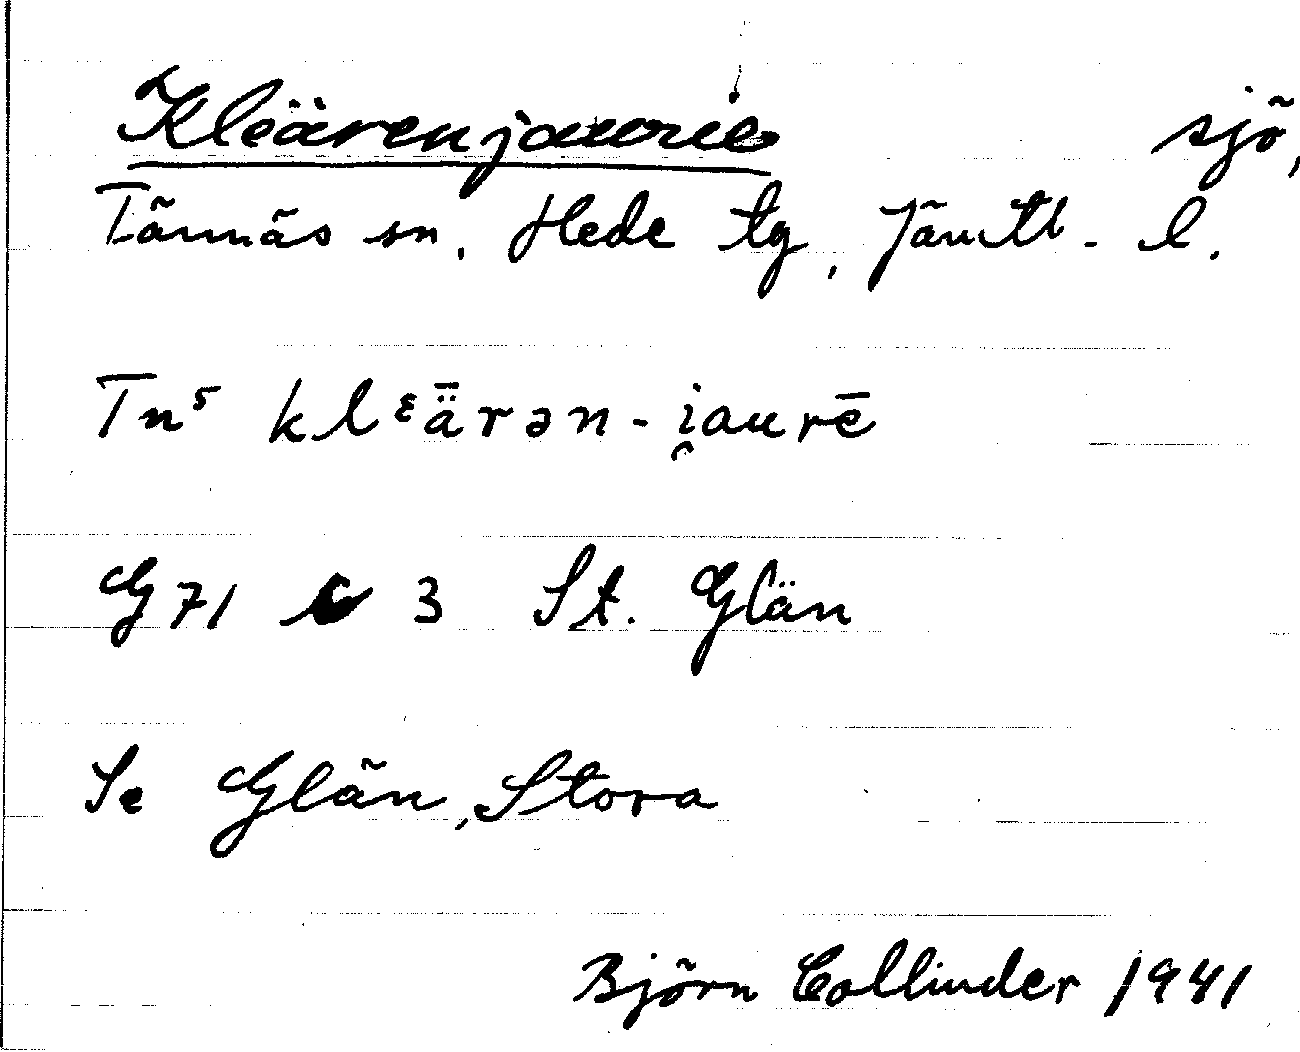 Kleärenjaurie sjö,
Tännäs sn, Hede tg, Jämtl. l.
Tn⁵ klᵋǟrən-i̯aurē
G71 c 3 St. Glän
Se Glän, Stora
Björn Collinder 1941